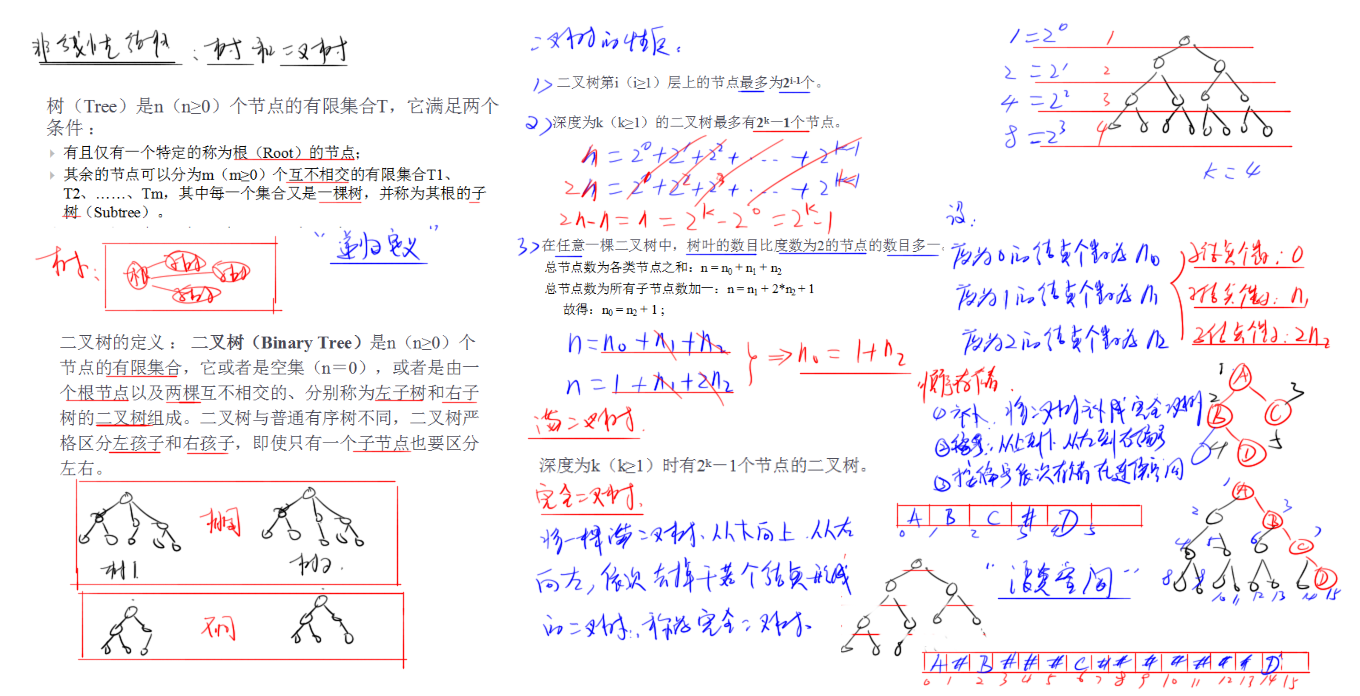 非线性结构：树和二叉树
树（Tree）是n（n≥0）个节点的有限集合T，它满足两个
条件：
有且仅有一个特定的称为根（Root）的节点；
其余的节点可以分为m（m≥0）个互不相交的有限集合T1、
T2、……、Tm，其中每一个集合又是一棵树，并称为其根的子
树（Subtree）。
“递归定义”
树：
根
子树
子树
子树
二叉树的定义： 二叉树（Binary Tree）是n（n≥0）个
节点的有限集合，它或者是空集（n＝0），或者是由一
个根节点以及两棵互不相交的、分别称为左子树和右子
树的二叉树组成。二叉树与普通有序树不同，二叉树严
格区分左孩子和右孩子，即使只有一个子节点也要区分
左右。
相同
树1.
树2.
不同
二叉树的性质：
1> 二叉树第i（i≥1）层上的节点最多为2i-1个。
2> 深度为k（k≥1）的二叉树最多有2k－1个节点。
n = 2^0+2^1+2^2+ ... + 2^k-1
2n = 2^1+2^2+2^3+ ... + 2^k
2n-n = n = 2^k-2^0 = 2^k-1
3> 在任意一棵二叉树中，树叶的数目比度数为2的节点的数目多一。
总节点数为各类节点之和：n = n0 + n1 + n2
总节点数为所有子节点数加一：n = n1 + 2*n2 + 1
故得：n0 = n2 + 1 ;
n = n0 + n1 + n2
n = 1 + n1 + 2n2
⇒ n0 = 1 + n2
满二叉树.
深度为k（k≥1）时有2k－1个节点的二叉树。
完全二叉树.
将一棵满二叉树，从下向上，从右
向左，依次去掉干若个结点形成
的二叉树，称为完全二叉树.
1 = 2^0 1
2 = 2^1 2
4 = 2^2 3
8 = 2^3 4
K = 4
设：
度为0的结点个数为 n0 子结点个数：0
度为1的结点个数为 n1 子结点个数：n1
度为2的结点个数为 n2 子结点个数：2n2
顺序存储.
①补：将二叉树补成完全二叉树
②编号：从上到下，从左到右编号
③按编号依次存储在连续空间
1 A
2 B C 3
4 D 5
A B C # D
0 1 2 3 4 5
“浪费空间”
1 A
2 B 3
4 5 6 C 7
8 9 10 11 12 13 14 D 15
A # B # # # C # # # # # # # D
0 1 2 3 4 5 6 7 8 9 10 11 12 13 14 15